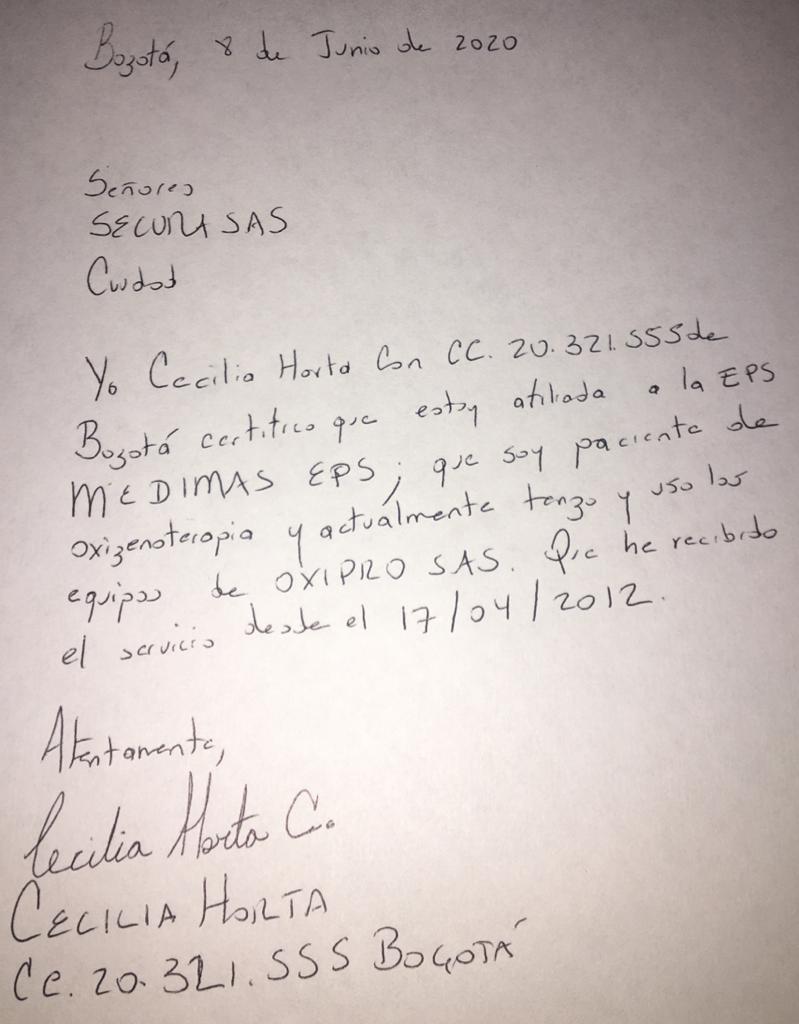 Bogotá, 8 de Junio de 2020
Señores
SECURA SAS
Ciudad
Yo Cecilia Horta Con CC. 20.321.555 de
Bogotá certifico que estoy afiliada a la EPS
MEDIMAS EPS; que soy paciente de
oxigenoterapia y actualmente tengo y uso los
equipos de OXIPRO SAS. Que he recibido
el servicio desde el 17/04/2012.
Atentamente,
Cecilia Horta C.
CECILIA HORTA
CC. 20.321.555 BOGOTÁ